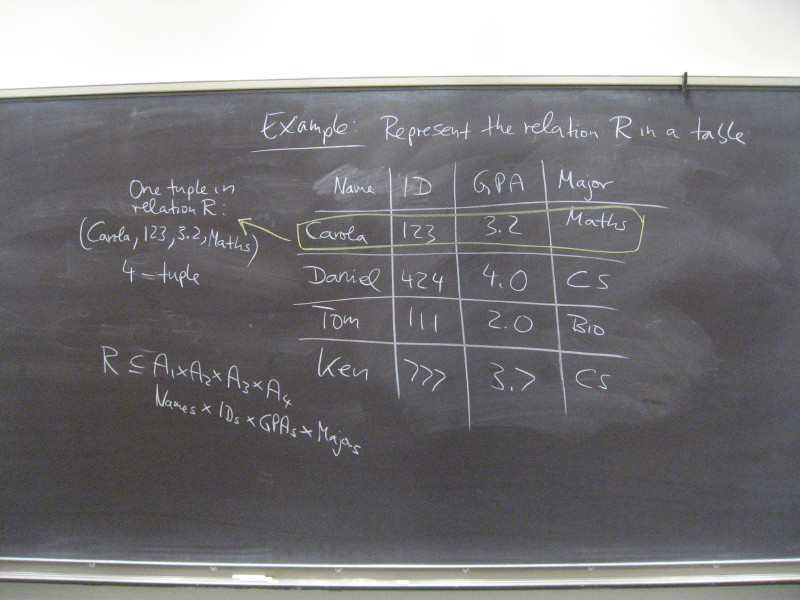 Example: Represent the relation R in a table
Name ID GPA Major
Carola 123 3.2 Maths
Daniel 424 4.0 CS
Tom 111 2.0 Bio
Ken 777 3.7 CS
One tuple in
relation R:
(Carola, 123, 3.2, Maths)
4-tuple
R ⊆ A₁×A₂×A₃×A₄
Names × IDs × GPAs × Majors